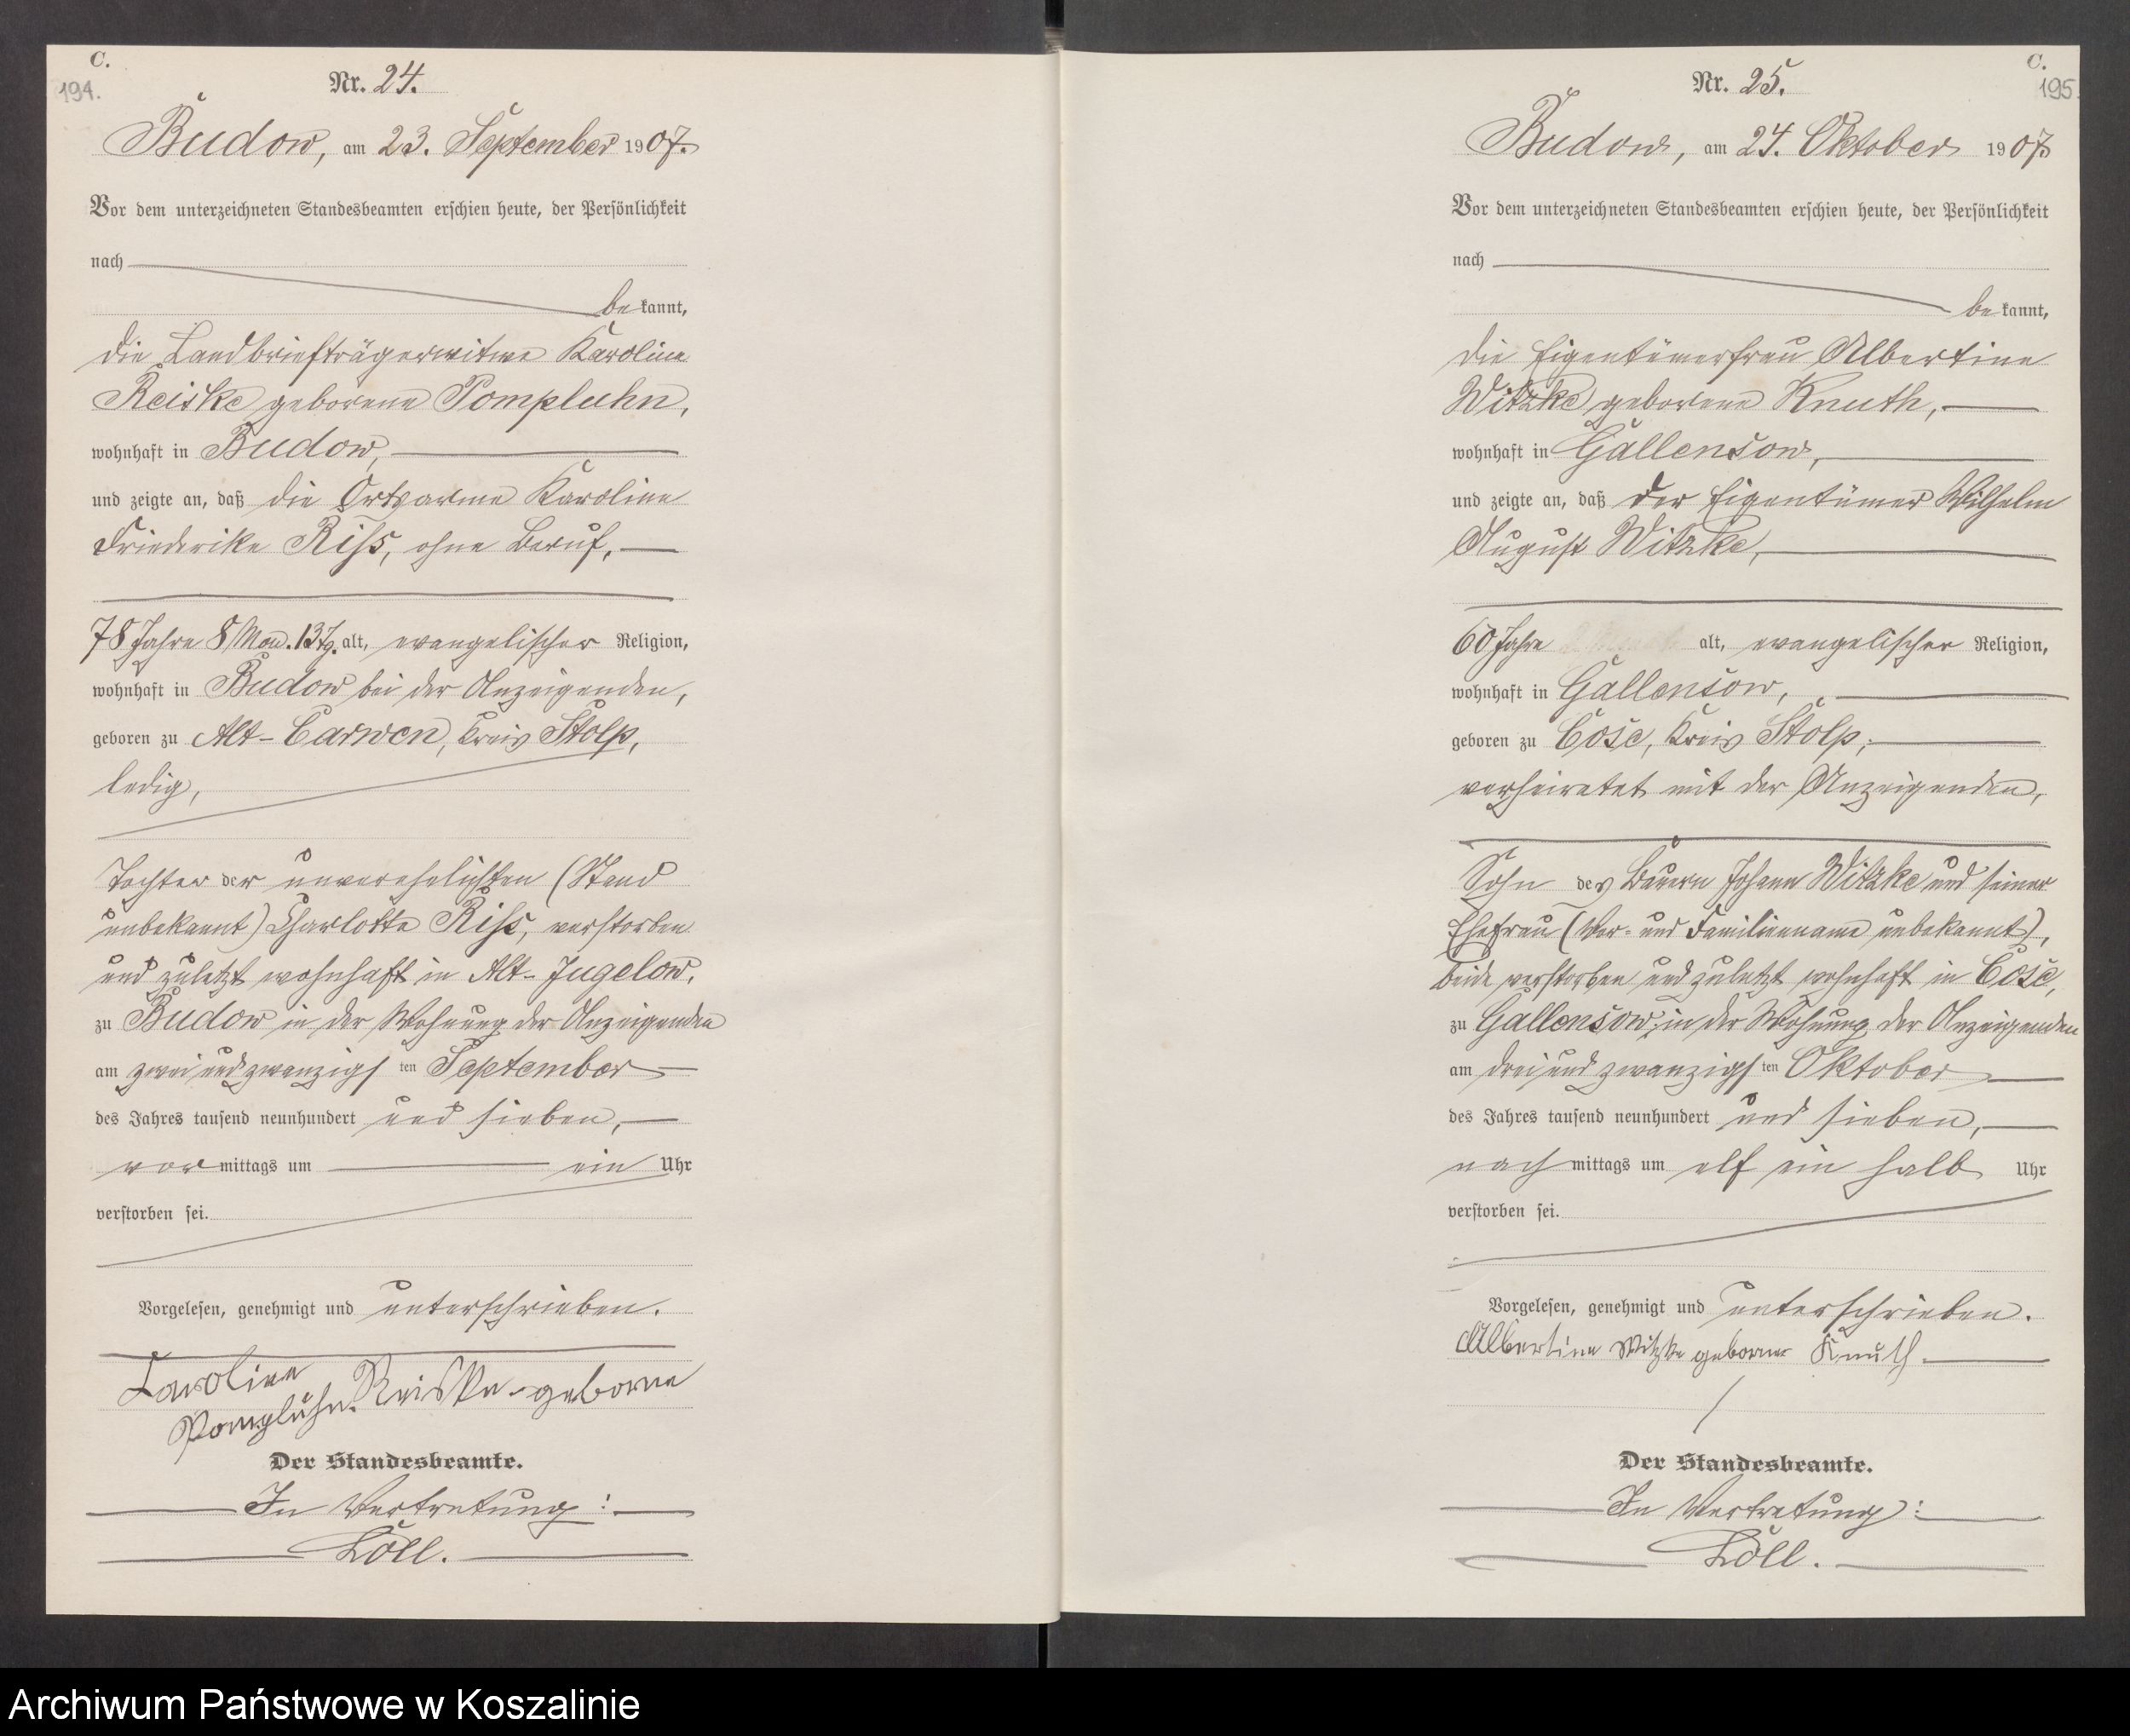 C.
194.
Nr. 24.
Budow, am 23. September 1907.
Vor dem unterzeichneten Standesbeamten erschien heute, der Persönlichkeit
nach
be kannt,
die Landbriefträgerwitwe Karoline
Reiske geborene Pompluhn,
wohnhaft in Budow,
und zeigte an, daß die Ortsarme Karoline
Friederike Riss, ohne Beruf,
78 Jahre 8 Mon. 13 Tg. alt, evangelischer Religion,
wohnhaft in Budow bei der Anzeigenden,
geboren zu Alt-Carwen, Kreis Stolp,
ledig,
Tochter der unverehelichten (Stand
unbekannt) Charlotte Riss, verstorben
und zuletzt wohnhaft in Alt-Jugelow,
zu Budow in der Wohnung der Anzeigenden
am zwei und zwanzigsten September
des Jahres tausend neunhundert und sieben,
vor mittags um ein Uhr
verstorben sei.
Vorgelesen, genehmigt und unterschrieben.
Caroline
Reiske geborne
Pompluhn.
Der Standesbeamte.
In Vertretung:
Löll.
C.
195.
Nr. 25.
Budow, am 24. Oktober 1907
Vor dem unterzeichneten Standesbeamten erschien heute, der Persönlichkeit
nach
be kannt,
die Eigentümerfrau Albertine
Witzke geborene Knuth,
wohnhaft in Gallensow,
und zeigte an, daß der Eigentümer Wilhelm
August Witzke,
60 Jahre alt, evangelischer Religion,
wohnhaft in Gallensow,
geboren zu Cose, Kreis Stolp,
verheiratet mit der Anzeigenden,
Sohn des Bauern Johann Witzke und seiner
Ehefrau (Vor- und Familienname unbekannt),
beide verstorben und zuletzt wohnhaft in Cose,
zu Gallensow, in der Wohnung der Anzeigenden
am drei und zwanzigsten Oktober
des Jahres tausend neunhundert und sieben,
nach mittags um elf ein halb Uhr
verstorben sei.
Vorgelesen, genehmigt und unterschrieben.
Albertine Witzke geborne Knuth
Der Standesbeamte.
In Vertretung:
Löll.
Archiwum Państwowe w Koszalinie